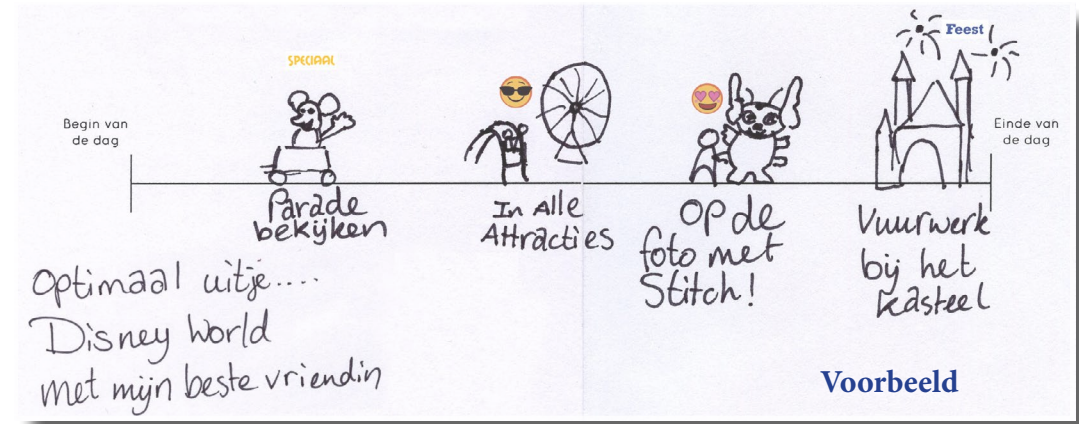 Feest
SPECIAAL
Begin van
de dag
Einde van
de dag
Parade
bekijken
In Alle
Attracties
Op de
foto met
Stitch!
Vuurwerk
bij het
kasteel
Optimaal uitje....
Disney World
met mijn beste vriendin
Voorbeeld